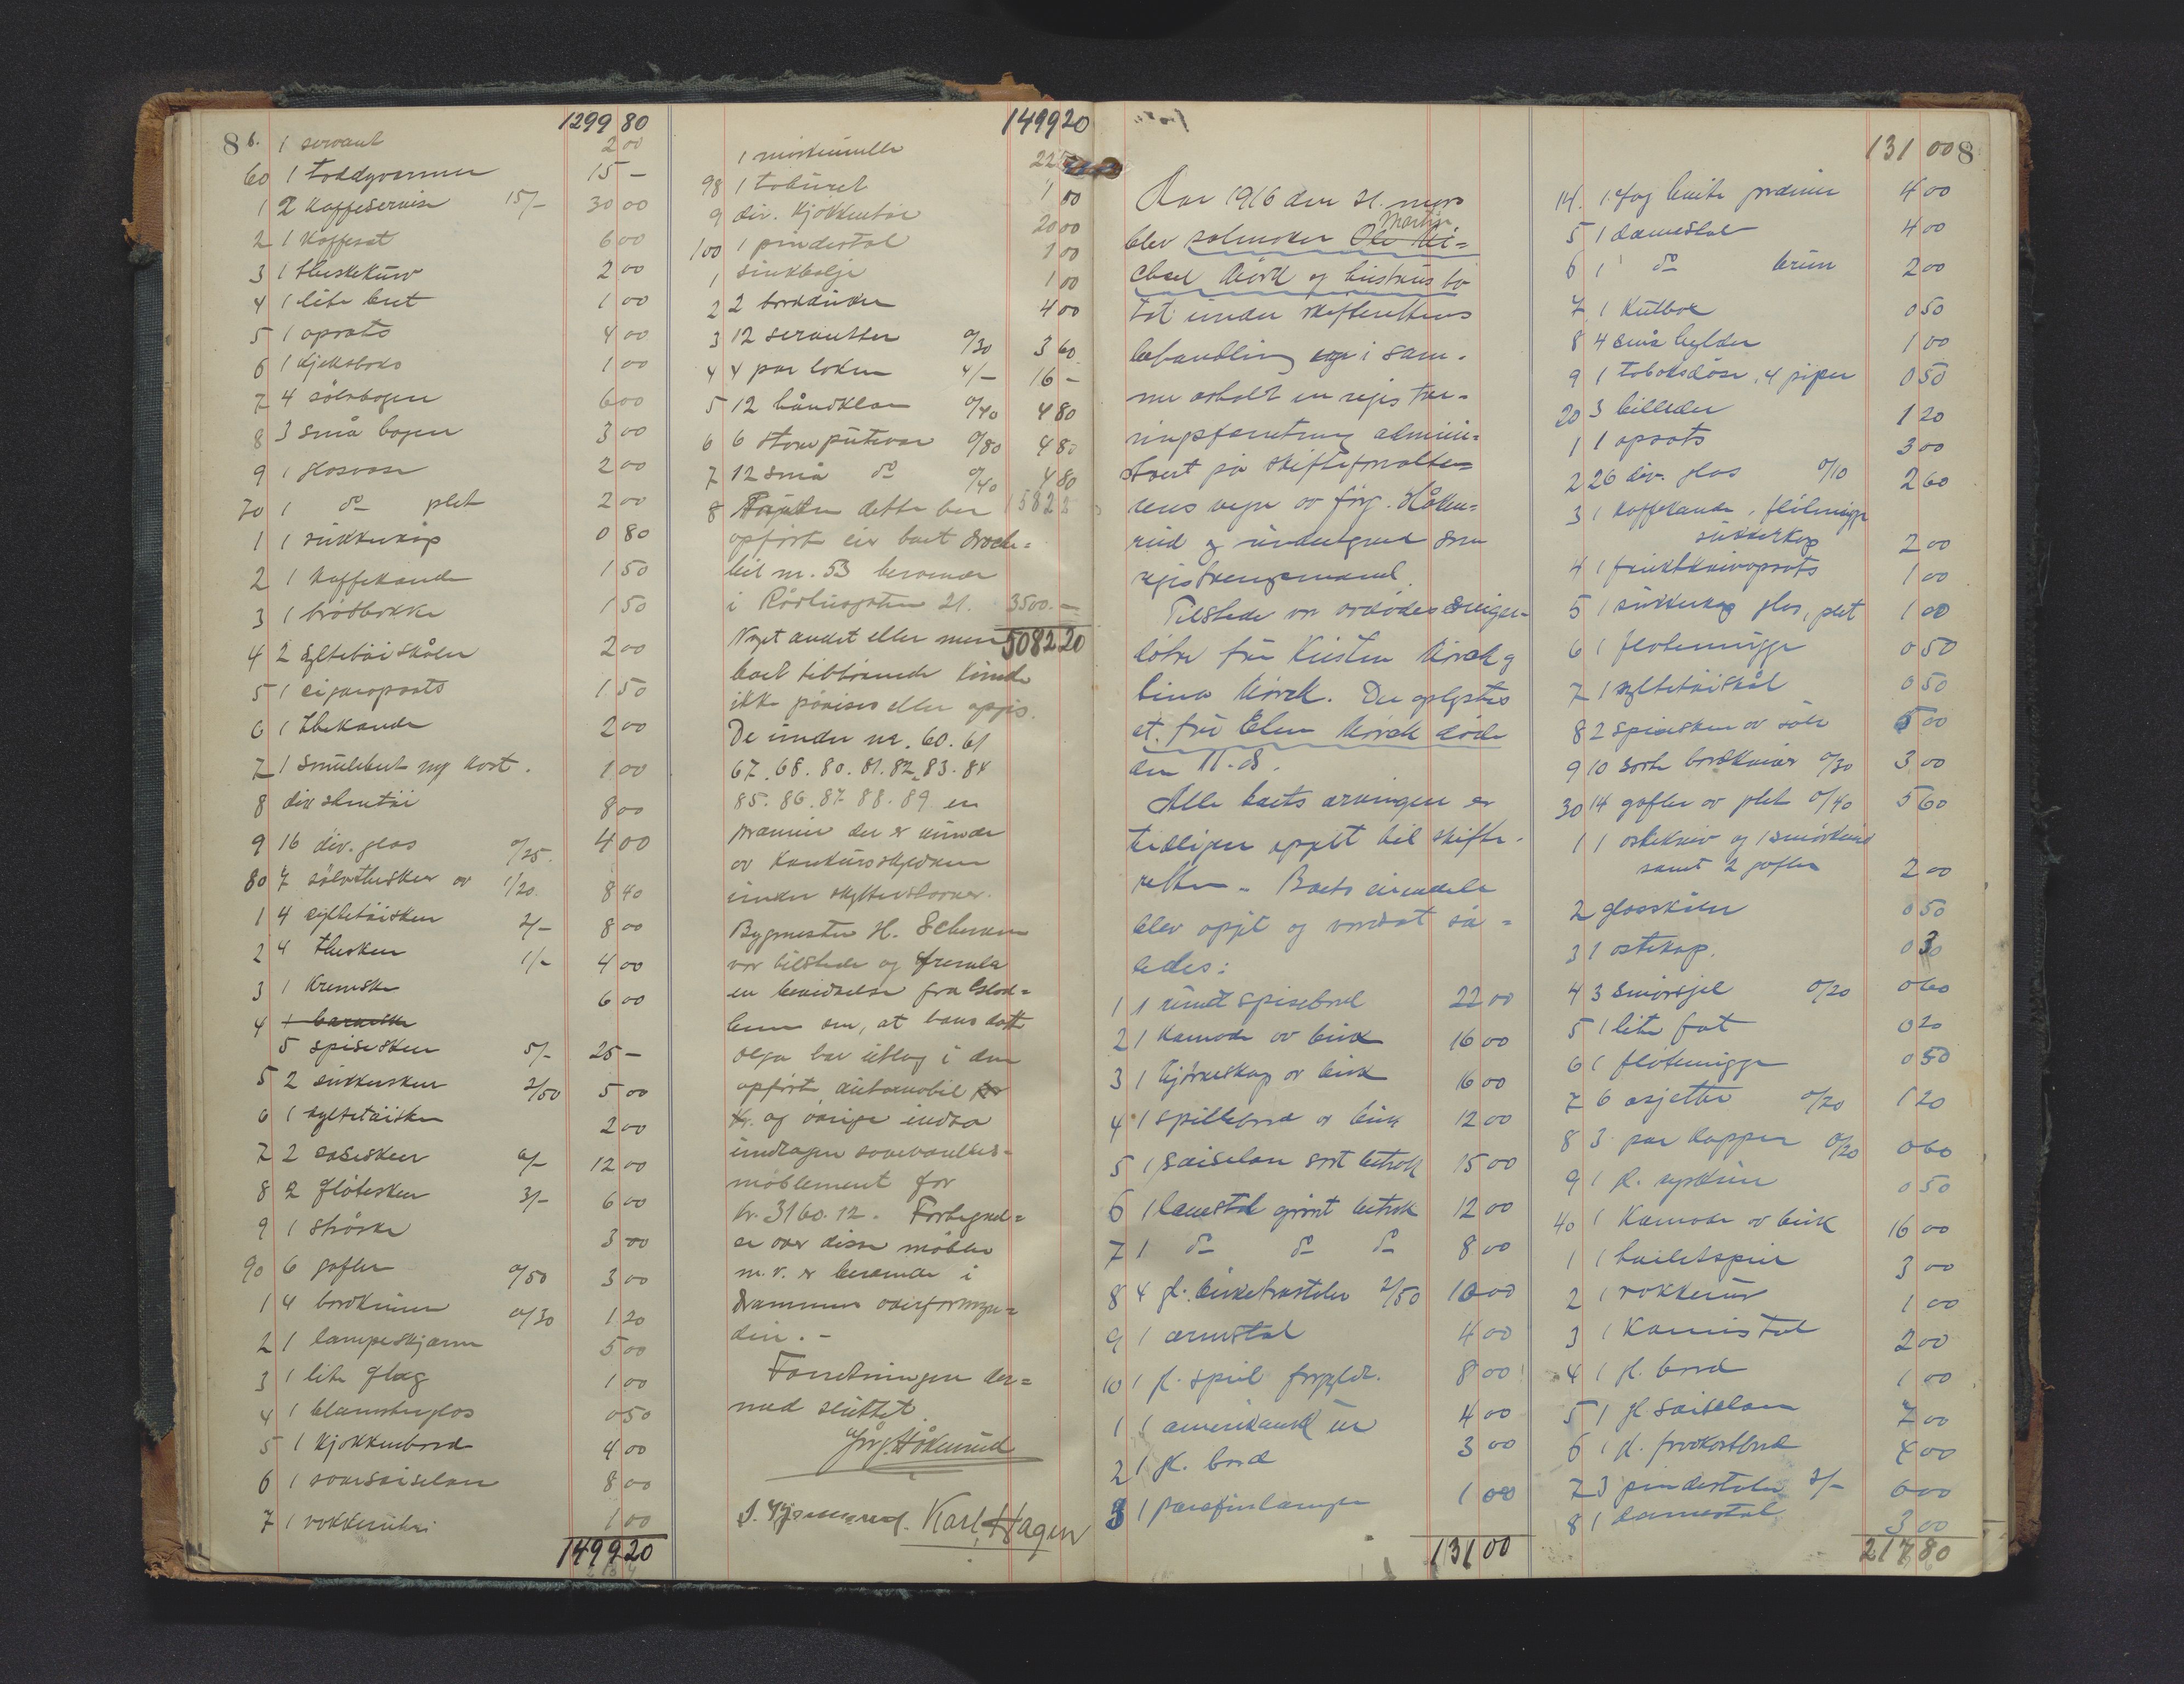 1299 80
8 6. 1 servant 2 00
60 1 toddyvarmer 15 –
1 2 Kaffeservise 15/- 30 00
2 1 Kaffesat 6 00
3 1 theskekurv 2 00
4 1 lite bret 1 00
5 1 opsats 4 00
6 1 kjeksboks 1 00
7 4 sølvbægere 6 00
8 3 små bægere 3 00
9 1 glasvase 2 00
70 1 do plet 2 00
1 1 sukkerkop 0 80
2 1 kaffekande 1 50
3 1 brødbakke 1 50
4 2 syltetøiskåler 2 00
5 1 cigaropsats 1 50
6 1 thekande 2 00
7 1 smulebret og kost. 1 00
8 div. stentøi 8 00
9 16 div. glas 0/25. 4 00
80 7 sølvtheskeer av 1/20. 8 40
1 4 syltetøiskeer 2/- 8 00
2 4 theskeer 1/- 4 00
3 1 kremske 6 00
4
5 spiseskeer 5/- 25 –
5 2 sukkerskeer 2/50 5 00
6 1 syltetøiske 2 00
7 2 saseskeer 6/- 12 00
8 2 fløteskeer 3/- 6 00
9 1 strøske 3 00
90 6 gafler 0/50 3 00
1 4 bordkniver 0/30 1 20
2 1 lampeskjærm 5 00
3 1 lite flag 1 00
4 1 blomsterglas 0 50
5 1 kjøkkenbord 4 00
6 1 soveschselon 8 00
7 1 1 00
1499 20
1499 20
1 2 25
98 1 taburet 1 00
9 div. kjøkkentøi 20 00
100 1 pindestol 1 00
1 sinkbalje 1 00
2 2 bordduker 4 00
3 12 servietter 0/30 3 60
4 4 par lakner 4/- 16 –
5 12 håndklær 0/40 4 80
6 6 store putevar 0/80 4 80
7 12 små do 0/40 4 80
8 Foruten dette ber 1582
opført eier boet
bil nr. 53 beroende
i Rådhusgaten 21. 3500. –
Noget andet eller mere 5082 20
boet tilhørende kunde
ikke påvises eller opgis.
De under nr. 60. 61
67. 68. 80. 81. 82. 83. 84
85. 86. 87 88. 89 er
præmier der er vundet
av konkursskyldneren
under
Bygmester H.
var tilstede og fremla
en bevidnelse fra
om, at hans datter
Olga har utlæg i den
opførte automobil
og øvrige indbo
undtagen soveværelses=
møblement for
kr. 3160.12.
over disse møbler
m. v. er beroende i
Drammens overformyn=
deri. –
Forretningen der=
med sluttet
Jørg. Håkenrud
Karl Hagen
Aar 1916 den 21. mars
Martin
blev salmaker Ole Mi=
chael Mørck og hustrus bo
tat under skifterettens
behandling og i sam=
me avholdt en registre=
ringsforretning admini=
strert på skifteforvalte=
rens vegne av Jørg. Håken=
rud og undertegnet som
registreringsmand.
Tilstede var avdødes sviger=
døtre fru Kirsten Mørck og
Lina Mørck. Der oplystes
at fru Elen Mørck døde
den 11. ds.
Alle boets arvinger er
tidligere opgit til skifte=
retten. – Boets eiendele
blev opgit og verdsat så=
ledes:
1 1 rundt spisebord 22 00
2 1 Kamode av birk 16 00
3 1 hjørneskap av birk 16 00
4 1 spillebord av birk 12 00
5 1 schaiselon sort betræk 15 00
6 1 lænestol grønt betræk 12 00
7 1 do do do 8 00
8 4 gl. birketræstoler 2/50 10 00
9 1 armstol 4 00
10 1 gl. speil forgyldt. 8 00
1 1 amerikansk ur 4 00
2 1 gl. bord 3 00
3 1 parafinlampe 1 00
131 00
131 00 8
14. 1 fag hvite gardiner 4 00
5 1 lænestol 4 00
6 1 do brun 2 00
7 1 kulboks 0 50
8 4 små hylder 1 00
9 1 tobaksdåse, 4 piper 0 50
20 3 billeder 1 20
1 1 opsats 3 00
2 26 div. glas 0/10 2 60
3 1 kaffekande, fløtemugge
sukkerkop 2 00
4 1 fruktknivopsats 1 00
5 1 sukkerkop glas, plet 1 00
6 1 fløtemugge 0 50
7 1 syltetøiskål 0 50
8 2 spiseskeer av sølv 5 00
9 10 sorte bordkniver 0/30 3 00
30 14 gafler av plet 0/40 5 60
1 1 ostekniv og 1 smørkniv
samt 2 gafler 2 00
2 glasskåler 0 50
3 1 ostekop. 0 30
4 3 0/20 0 60
5 1 lite fat 0 20
6 1 fløtemugge 0 50
7 6 asjetter 0/20 1 20
8 3 par kopper 0/20 0 60
9 1 gl. 0 50
40 1 Kamode av birk 16 00
1 1 toiletspeil 3 00
2 1 1 00
3 1 2 00
4 1 gl. bord 1 00
5 1 gl. schaiselon 7 00
6 1 gl. frokostbord 4 00
7 3 pindestoler 2/- 6 00
8 1 lænestol 3 00
217 80